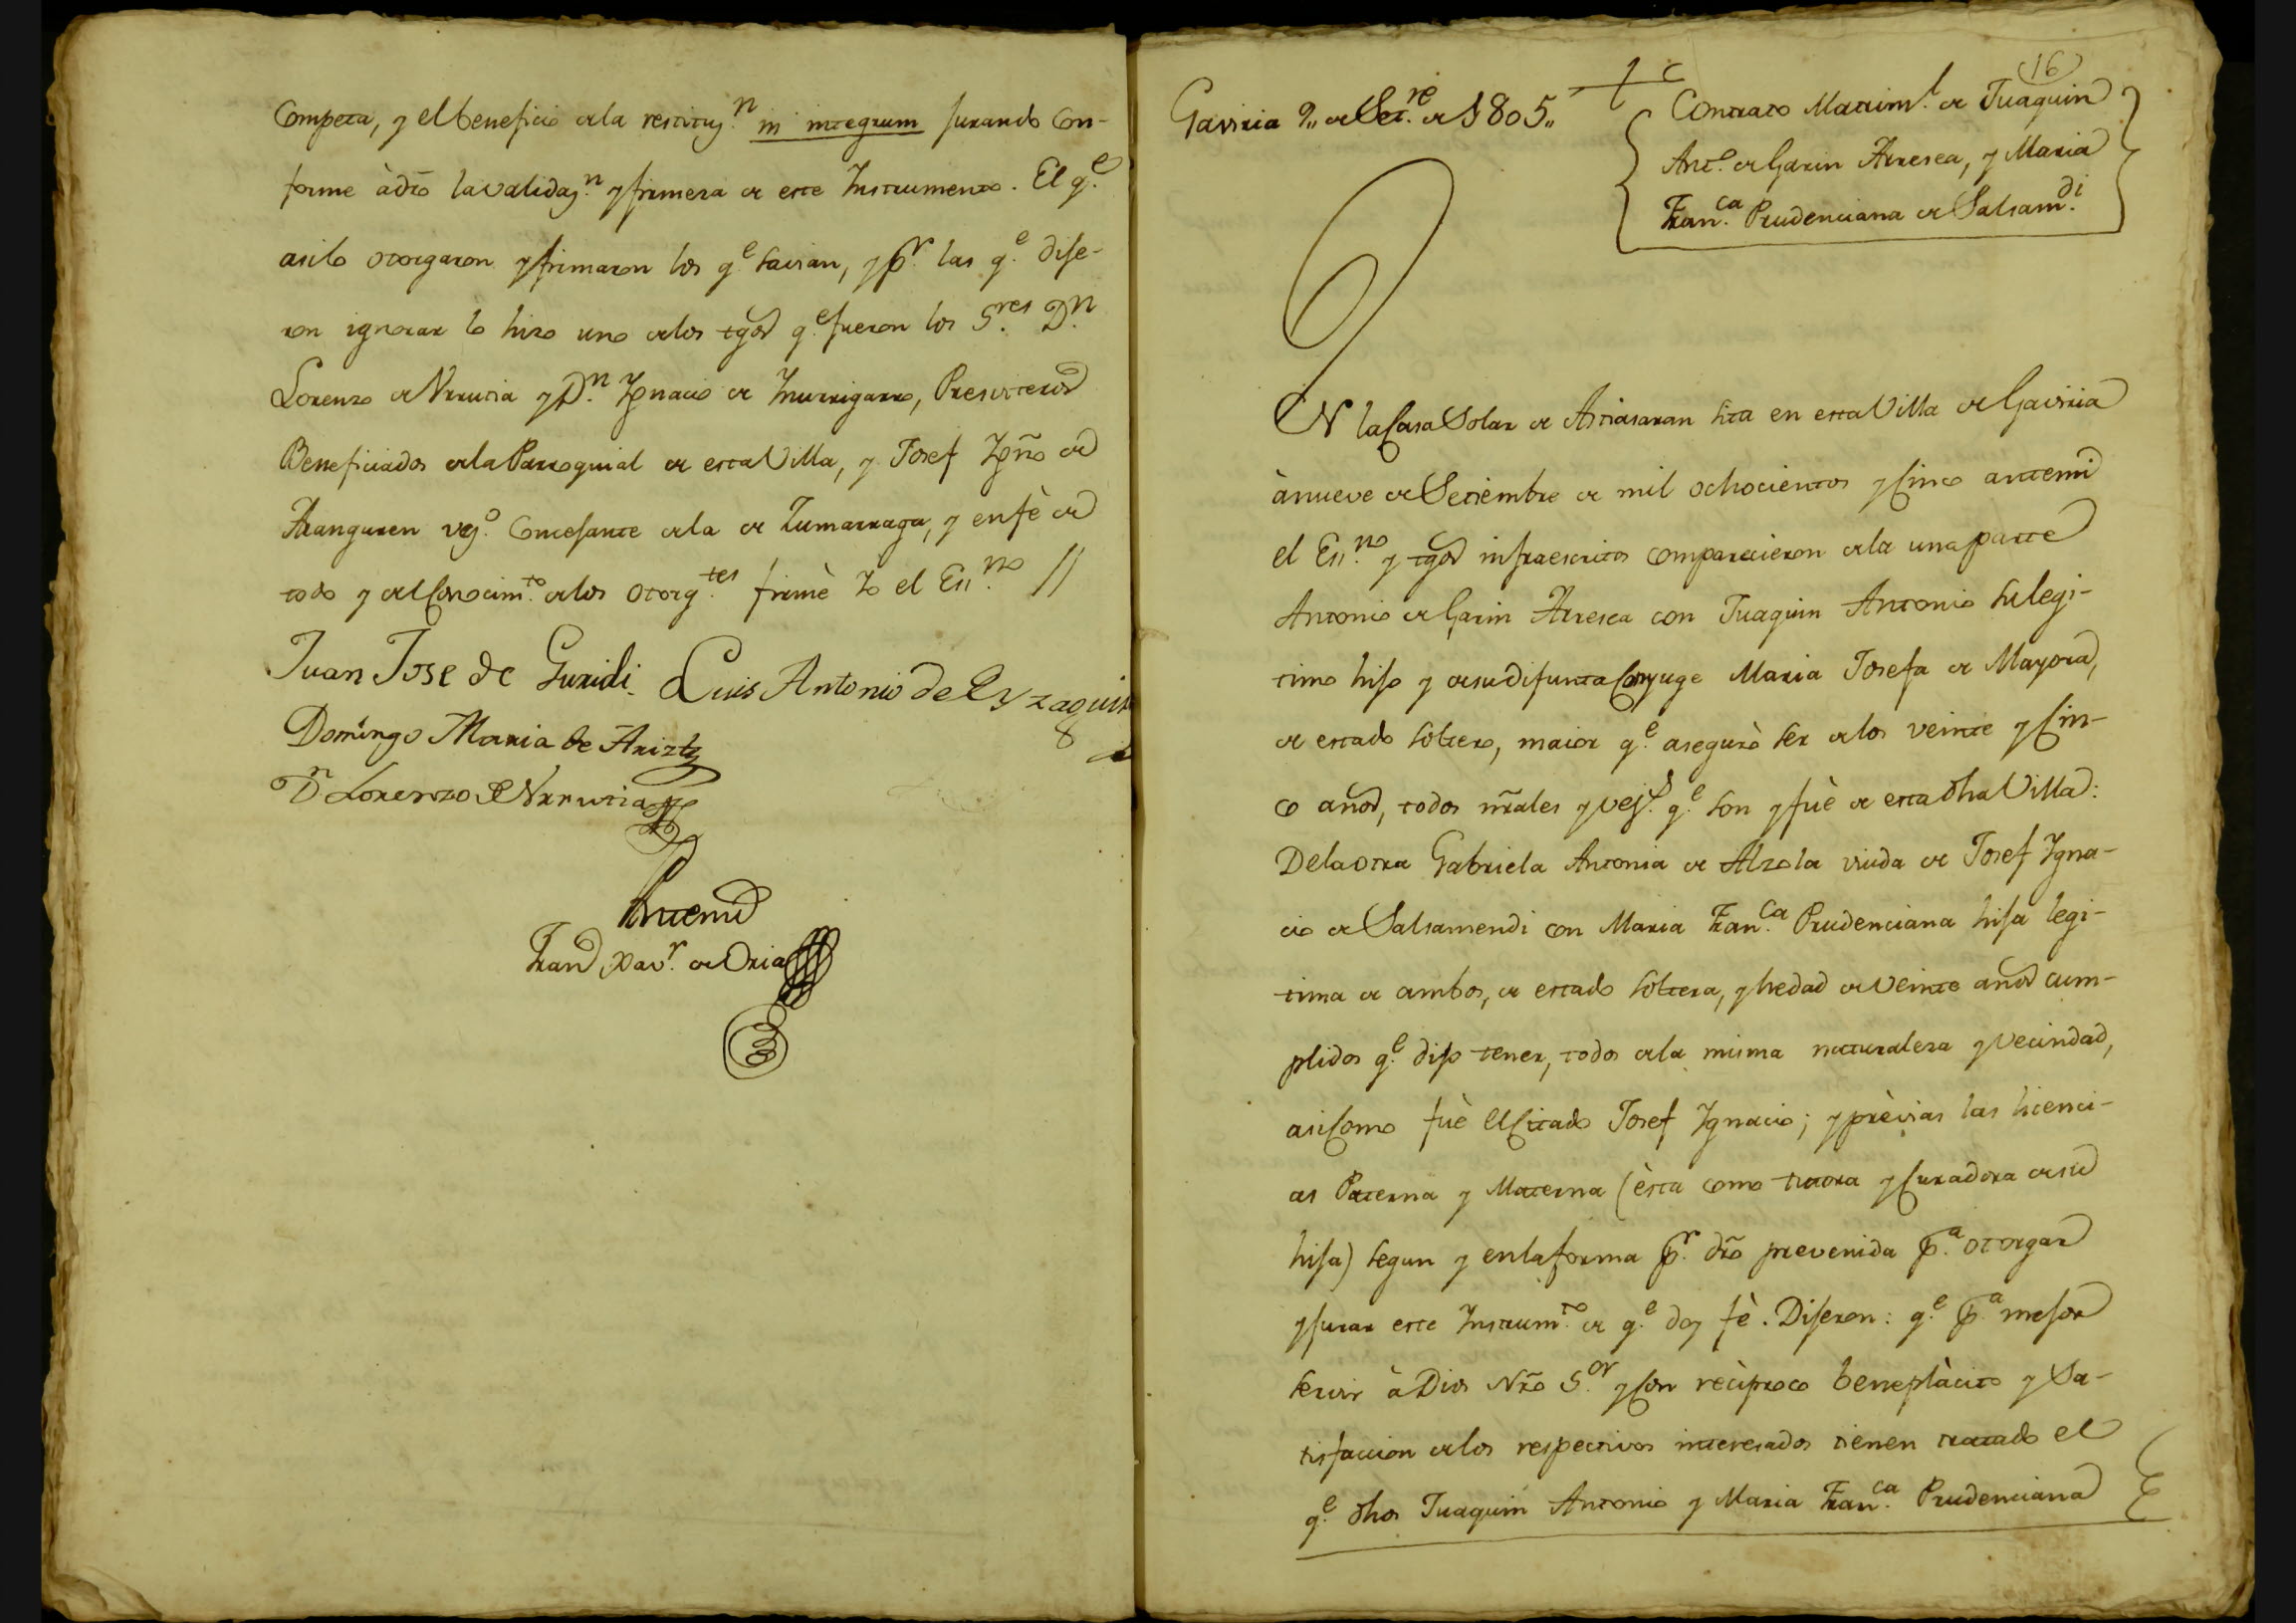 Competa, y el beneficio de la restituz.n in integrum jurando Con-
forme à dro la validaz.n y firmeza de este Instrumento. El q.e
asi lo otorgaron y firmaron los q.e savian, y pr. las q.e dije-
ron ignorar lo hizo uno de los tgos q.e fueron los S.res D.n
Lorenzo de Vrrutia y D.n Ignacio de Inurrigarro, Presviteros
Beneficiados de la Parroquial de esta Villa, y Josef Igño de
Aranguren vez.o Concejante de la de Zumarraga, y en fè de
todo y del Conocim.to de los otorg.tes firmè Yo el Es.no //
Juan Jose de Guridi Luis Antonio de Eyzaguir
Domingo Maria de Ariztj
Dn Lorenzo de Vrrutia
Antemi
Fran Xav.r de Oria
16
Gaviria 9,, de Set.re de 1805,,
Contrato Matrim.l de Juaquin
Ant.o de Garin Arresea, y Maria
Fran.ca Prudenciana de Salsam.di
EN la Casa Solar de Astiasaran sita en esta Villa de Gaviria
à nueve de Setiembre de mil ochocientos y Cinco antemi
el Es.no y tgos infraescritos comparecieron de la una parte
Antonio de Garin Arresea con Juaquin Antonio su legi-
timo hijo y de su difunta Conyuge Maria Josefa de Mayora,
de estado soltero, maior q.e asegurò ser de los veinte y Cin-
co años, todos nrales y vez.s q.e son y fuè de esta dha Villa:
De la otra Gabriela Antonia de Alzola viuda de Josef Igna-
cio de Salsamendi con Maria Fran.ca Prudenciana hija legi-
tima de ambos, de estado soltera, y hedad de Veinte años cum-
plidos q.e dijo tener, todos de la misma naturaleza y Vecindad,
asi Como fuè el Citado Josef Ignacio; y prèvias las licenci-
as Paterna y Materna (èsta como tutora y Curadora de su
hija) segun y en la forma pr. dro prevenida p.a otorgar
y jurar este Instrum.to de q.e doy fè. Dijeron: q.e p.a mejor
servir à Dios Nro S.or y Con recìproco beneplàcito y Sa-
tisfaccion de los respectivos interesados tienen tratado el
q.e dhos Juaquin Antonio y Maria Fran.ca Prudenciana